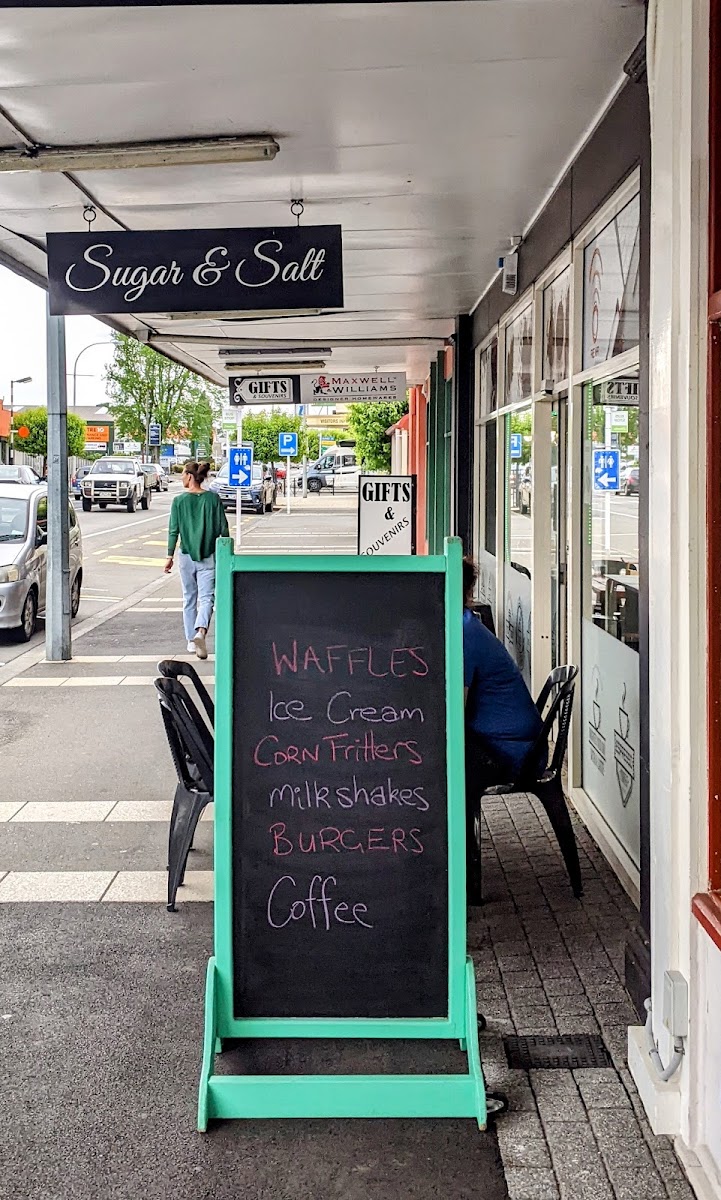 Sugar & Salt
GIFTS
& SOUVENIRS
MAXWELL
WILLIAMS
DESIGNER HOMEWARES
P
GIFTS
&
SOUVENIRS
WAFFLES
Ice Cream
CORN Fritters
milkshakes
BURGERS
Coffee
GIFTS